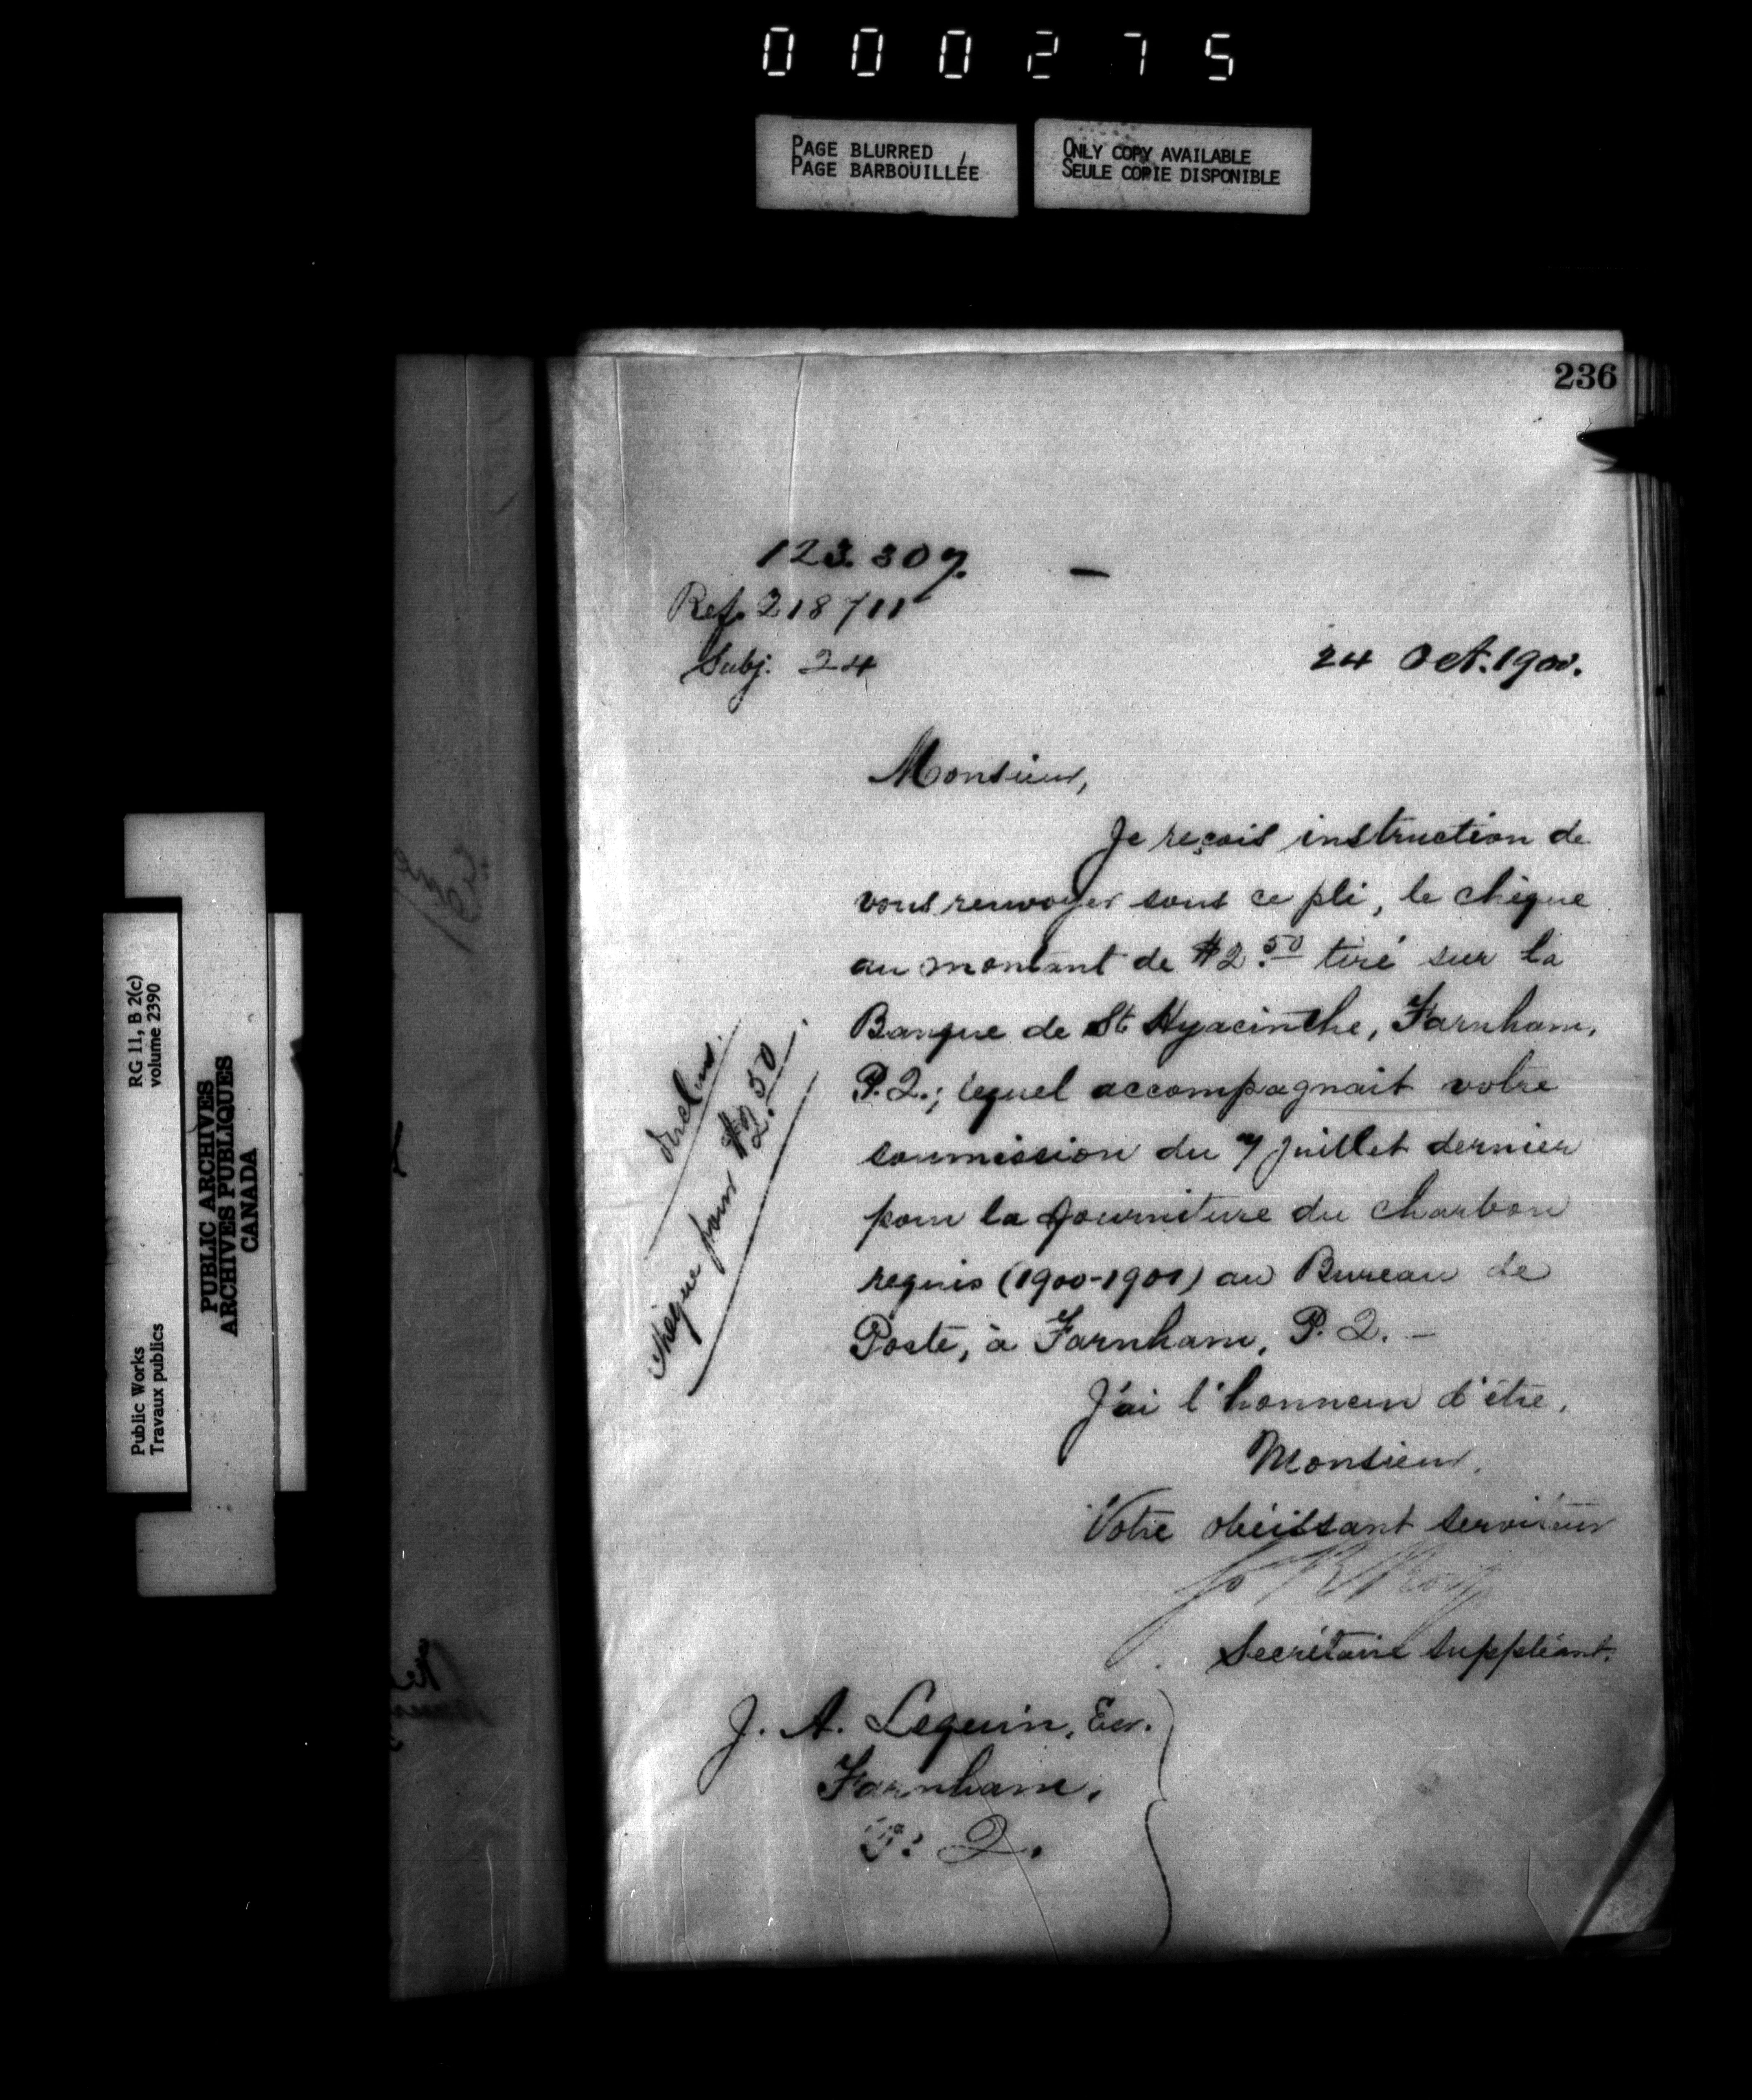 000275
PAGE BLURRED
PAGE BARBOUILLÉE
ONLY COPY AVAILABLE
SEULE COPIE DISPONIBLE
236
123.307.
Ref. 218711
Subj. 24
24 Oct. 1900.
Monsieur,
Je reçois instruction de
vous renvoyer sous ce pli, le chèque
au montant de $2.50 tiré sur la
Banque de St Hyacinthe, Farnham,
P.Q.; lequel accompagnait votre
soumission du 7 juillet dernier
pour la fourniture du charbon
requis (1900-1901) au Bureau de
Poste, à Farnham, P.Q. —
J'ai l'honneur d'être,
Monsieur,
Votre obéissant serviteur
Secrétaire suppléant.
J. A. Lequin, Ecr.
Farnham,
P. Q.
Inclus.
Chèque pour $2.50
RG 11, B 2(c)
volume 2390
PUBLIC ARCHIVES
ARCHIVES PUBLIQUES
CANADA
Public Works
Travaux publics